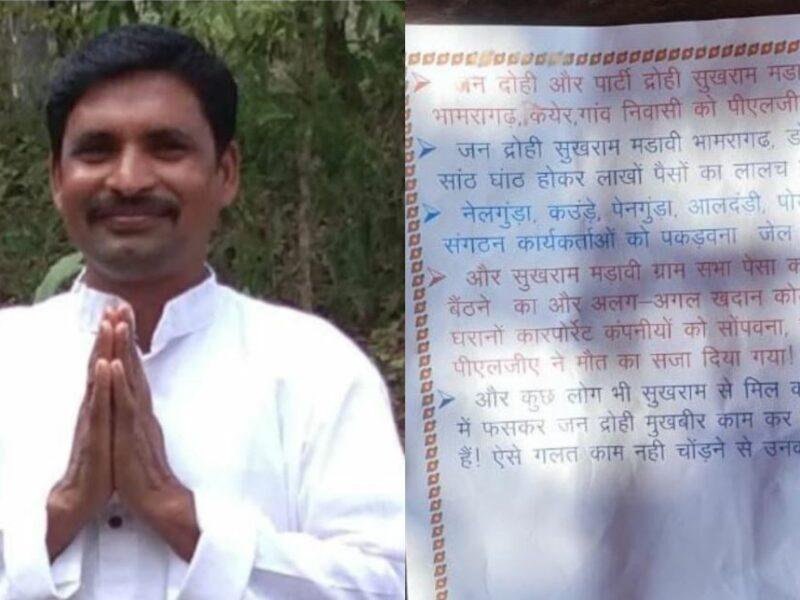 जन दोही और पार्टी द्रोही सुखराम मडा
भामरागढ,, केयेर,गांव निवासी को पीएलजी
जन द्रोही सुखराम मडावी भामरागढ,
सांठ घांठ होकर लाखों पैसों का लालच
नेलगुंड़ा, कउंड़े, पेनगुंडा, आलदंड़ी,
संगठन कार्यकर्ताओं को पकड़वना जेल
और सुखराम मड़ावी ग्राम सभा पेसा
बैंठने का और अलग–अगल खदान को
घरानों कारपोर्रेट कंपनीयों को सोंपवना,
पीएलजीए ने मौत का सजा दिया गया!
और कुछ लोग भी सुखराम से मिल
में फसकर जन द्रोही मुखबीर काम कर
हैं! ऐसे गलत काम नही चोंड़ने से उनव